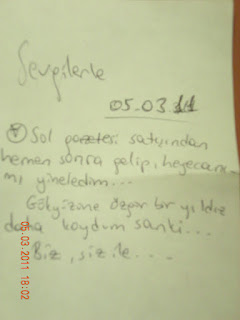 Sevgilerle
05.03.11
Sol gazetesi satışından
hemen sonra gelip, heyecanı-
mı yineledim...
Gökyüzüne özgür bir yıldız
daha koydum sanki...
Biz, siz ile....
05.03.2011 18:02